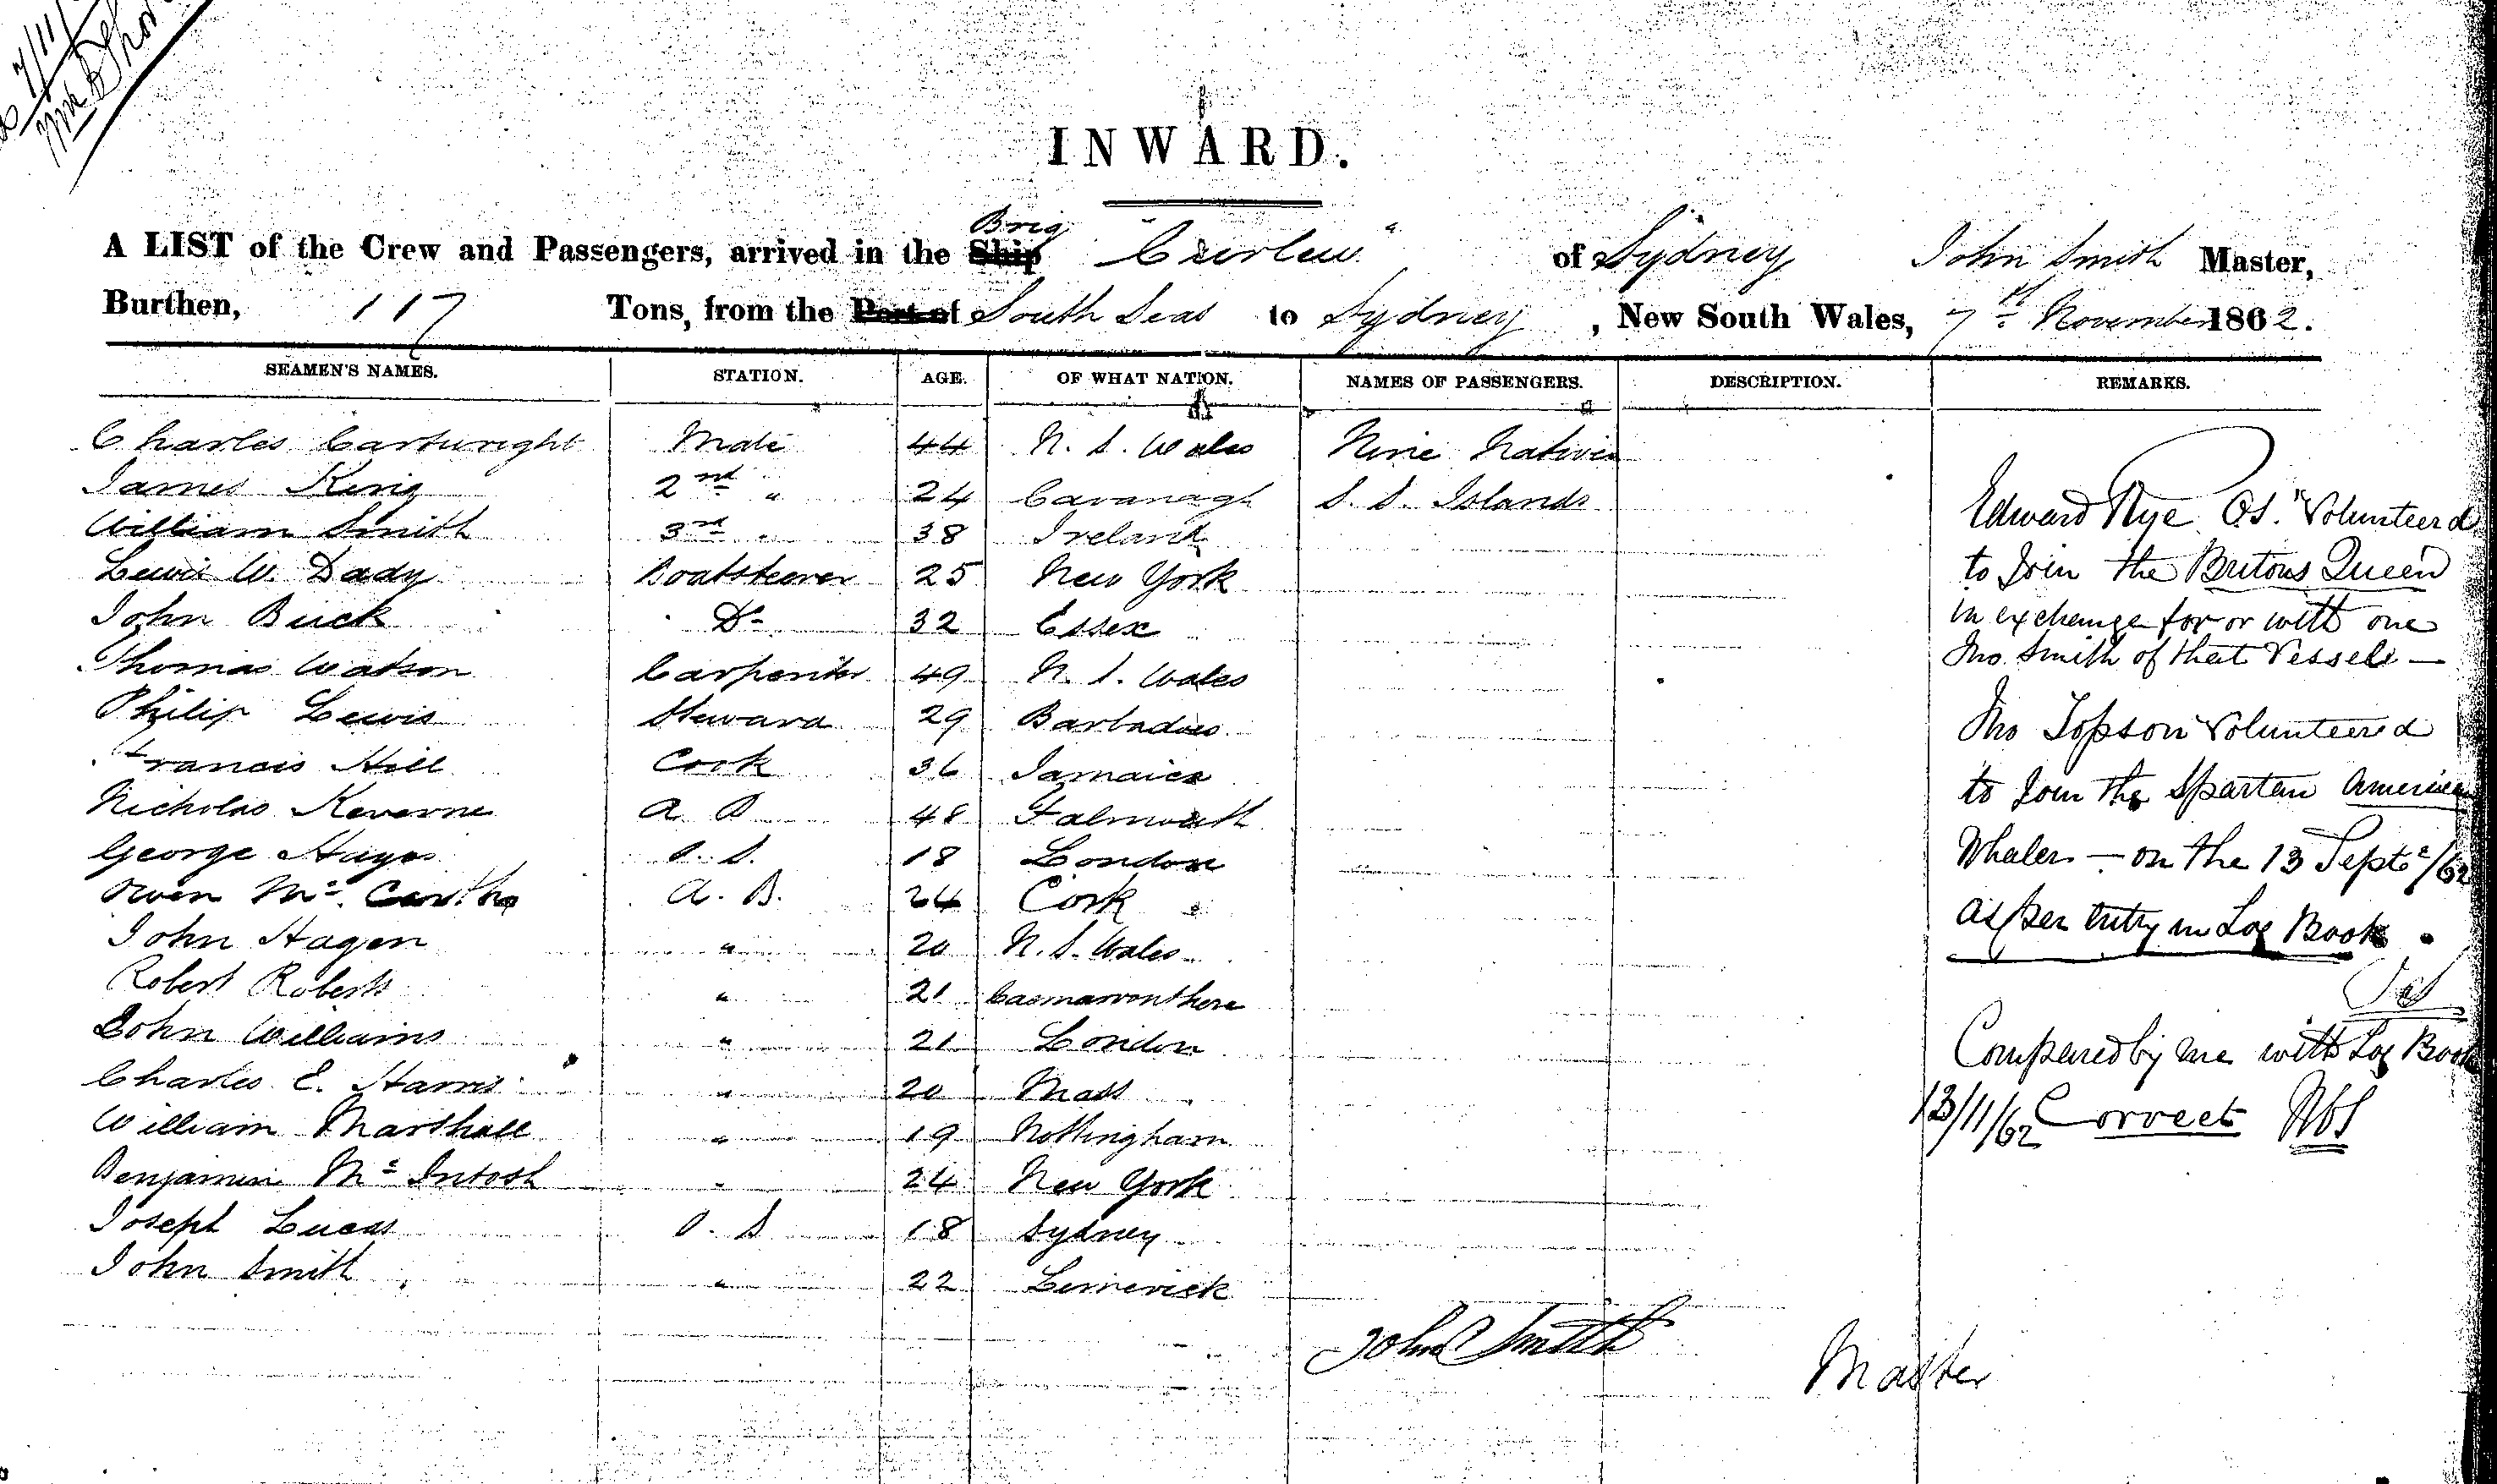 7/11/
INWARD.
Brig
A LIST of the Crew and Passengers, arrived in the Ship "Curlew" of Sydney John Smith Master,
Burthen, 117 Tons, from the Port of South Seas to Sydney, New South Wales, 7th November 1862.
SEAMEN'S NAMES. STATION. AGE. OF WHAT NATION. NAMES OF PASSENGERS. DESCRIPTION. REMARKS.
Charles Cartwright Mate 44 N. S. Wales Nine Natives
James King 2nd " 24 Cavanagh S. S. Islands
William Smith 3rd " 38 Ireland
Lewis W. Dady Boatsteerer 25 New York
John Buck Do 32 Essex
Thomas Watson Carpenter 49 N. S. Wales
Philip Lewis Steward 29 Barbadoes
Francis Hill Cook 36 Jamaica
Nicholas Keverne A B 48 Falmouth
George Hayes O. S. 18 London
Owen Mc. Carthy A. B. 24 Cork
John Hagen " 20 N. S. Wales
Robert Roberts " 21
John Williams " 21 London
Charles E. Harris " 20 Mass
William Marshall " 19 Nottingham
Benjamin Mc Intosh " 24 New York
Joseph Lucas O. S 18 Sydney
John Smith " 22 Limerick
Edward Rye O.S. Volunteerd
to Join the Britons Queen
in exchange for or with one
Jno. Smith of that Vessel —
Jno Topson Volunteered
to Join the Spartan American
Whaler — on the 13 Septr/62
as per Entry in Log Book.
Compared by me with Log Book
13/11/62 Correct
John Smith
Master